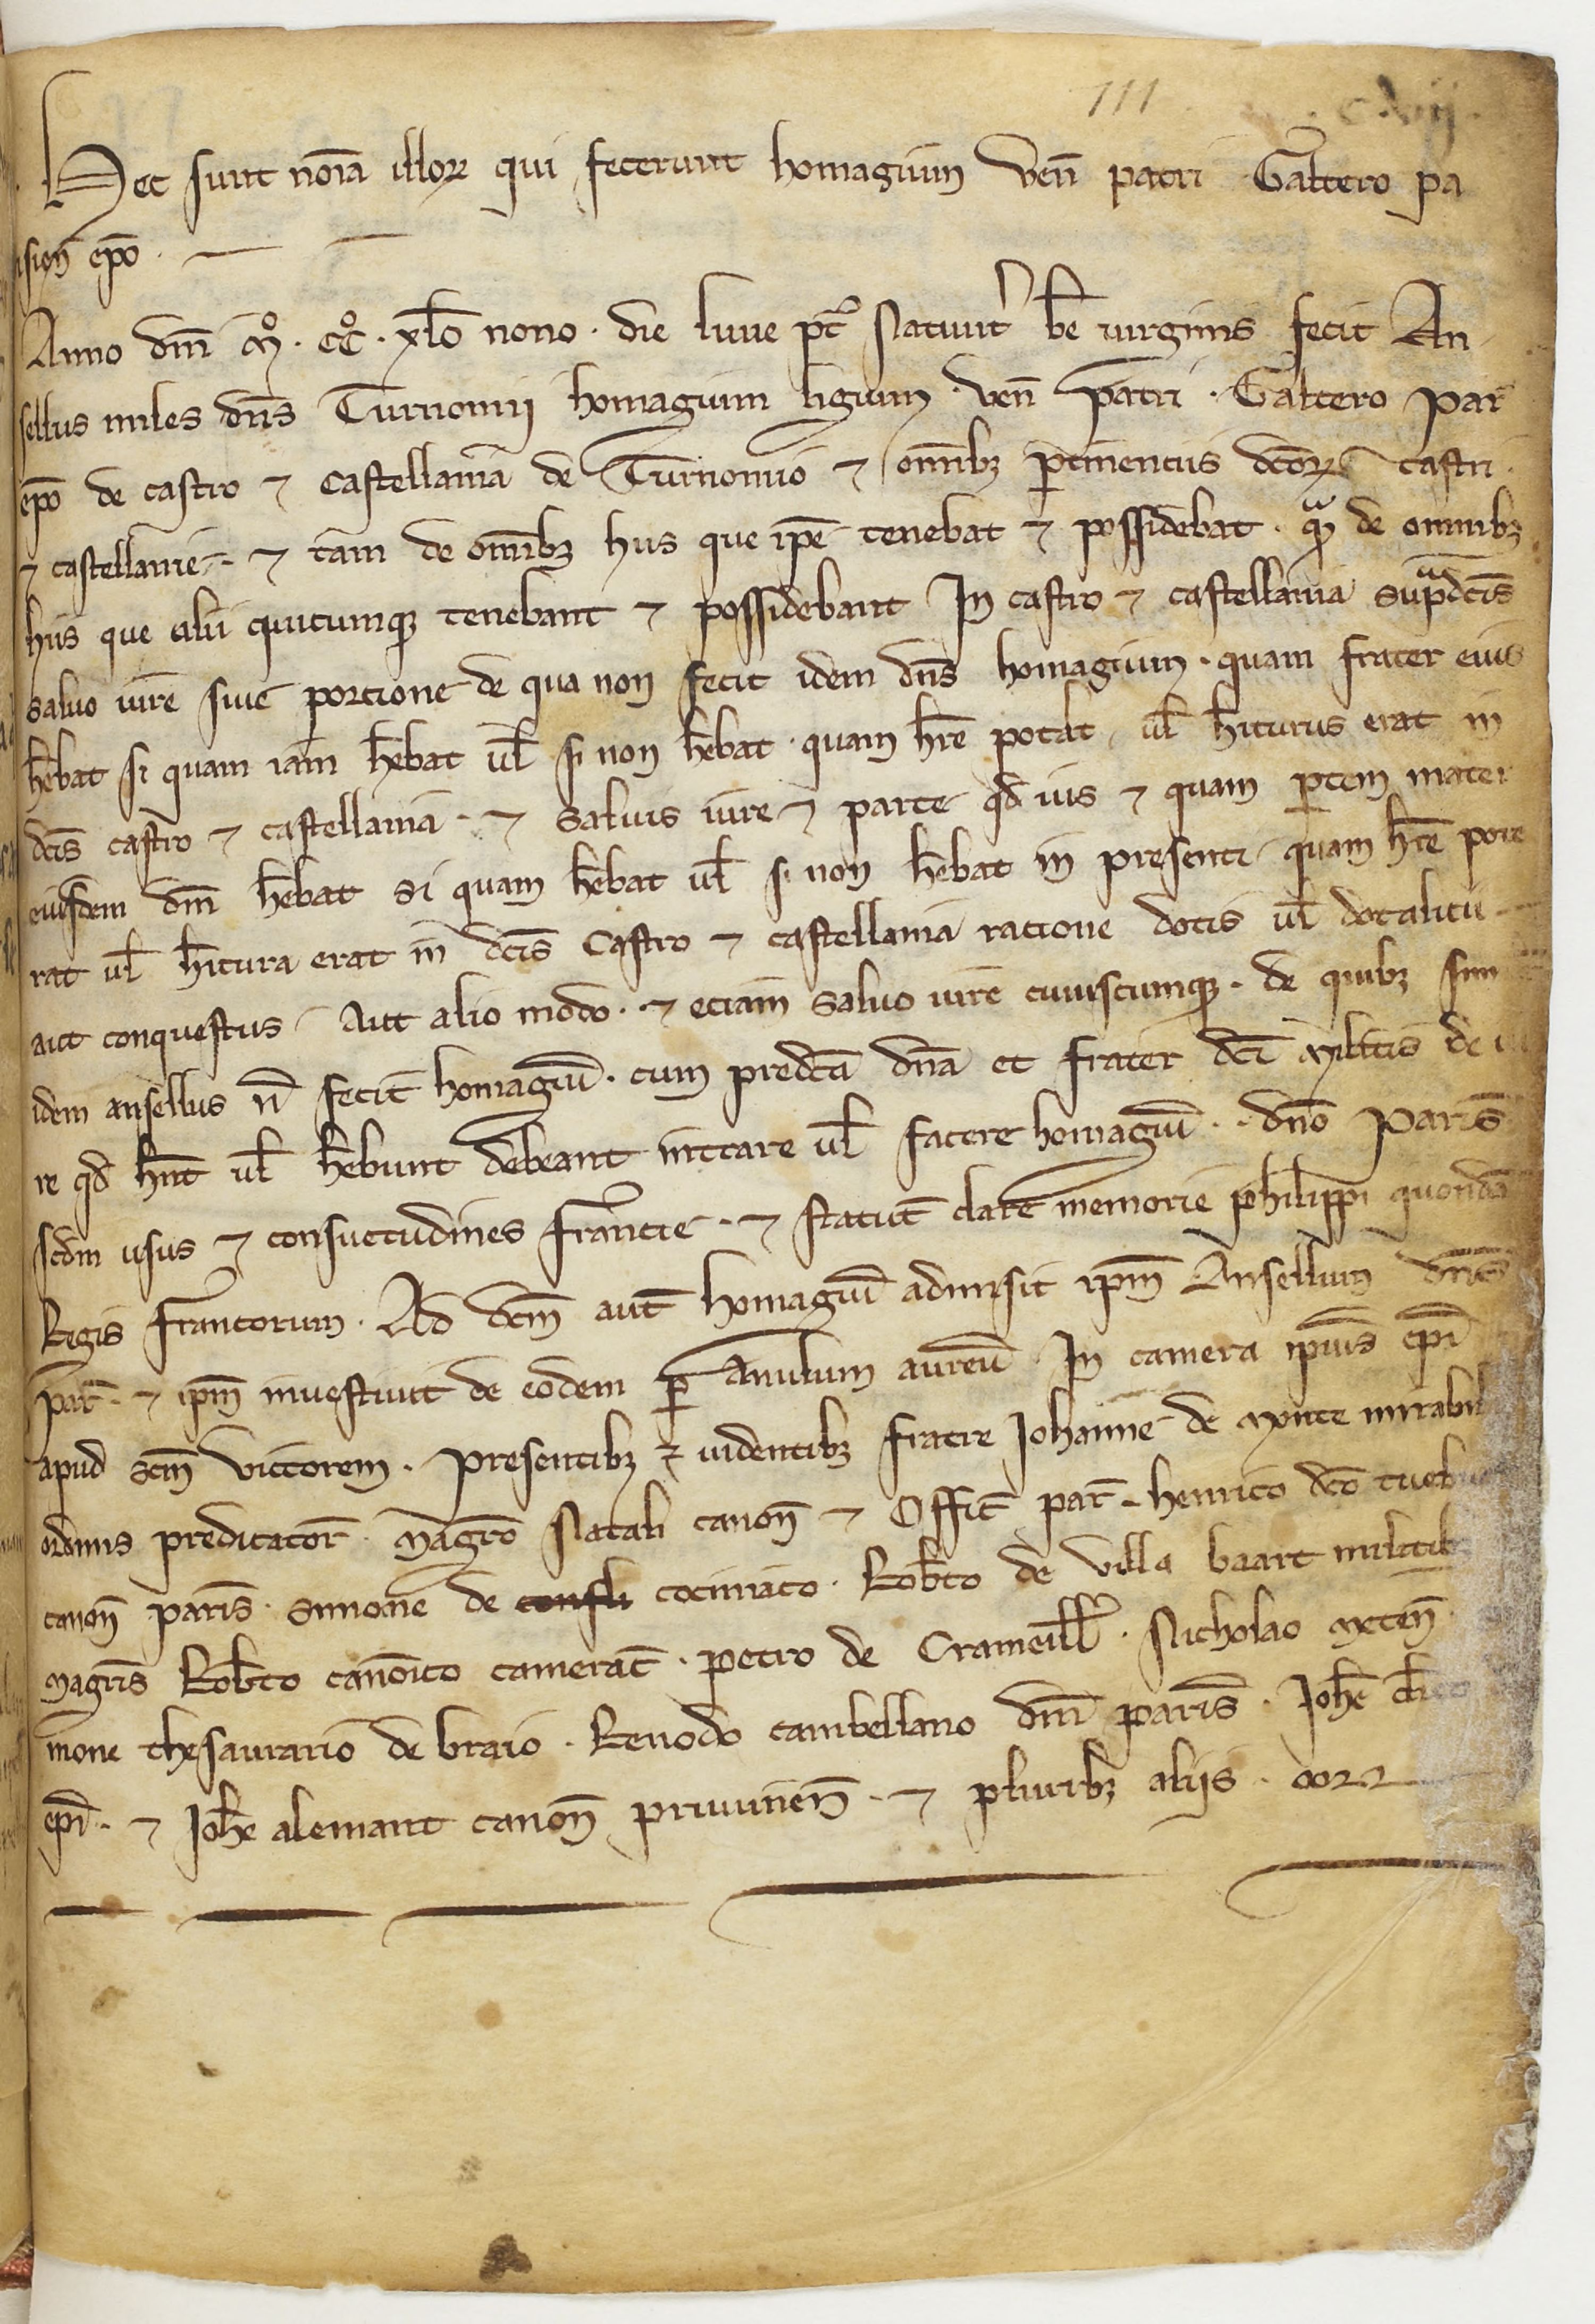 111
Hec sunt noīa illoꝝ qui fecerunt homagium veñ patri Galtero pa
risieñ epo.
Anno dnī mͦ. ccͦ. xlo nono. die lune pt Natiuit be uirginis fecit An
sellus miles dns Turnomii homagium ligium. ueñ patri. Galtero Par
epo de castro ⁊ Castellania de Turnomio ⁊ omībꝫ ꝑtinentiis dcoꝝ castri.
⁊ castellanie. ⁊ tam de omībꝫ hiis que ipe tenebat ⁊ possidebat. qm de omnibꝫ
hiis que alii quicumqꝫ tenebant ⁊ possidebant In castro ⁊ castellania supadcis
saluo iure siue portione de qua non fecit idem dns homagium. quam frater eius
hebat si quam iam hebat ul si non hebat. quam hre potat. ul hiturus erat in
dcis castro ⁊ castellania. ⁊ saluis iure ⁊ parte qd ius ⁊ quam ꝑtem mater
eiusdem dnī hebat si quam hebat ul si non hebat in presenti quam hre pote
rat ul hitura erat in dcis Castro ⁊ castellania ratione dotis ul dotalitii
aut conquestus Aut alio modo. ⁊ etiam saluo iure cuiuscumqꝫ. de quibꝫ
idem ansellus n̄ fecit homagiū. cum predcā dna et frater dcī militis de
re qd hnt ul hebunt debeant intrare ul facere homagiū. dno Paris
scdm usus ⁊ consuetudines francie. ⁊ statut clare memorie philippi quondā
Regis francorum. Ad dcm aut homagiū admisit ipm Ansellum dns
par. ⁊ ipm inuestiuit de eodem ꝑ Anulum aureū In camera ipius epi
apud scm Victorem. Presentibꝫ ⁊ uidentibꝫ fratre Johanne de Monte mirabili
ordinis predicator. Magro Natali canoñ ⁊ Offic par. henrico dco
canoñ paris. Simone de consli cociniaco. Robto de villa baart militibꝫ
Magris Robto canonico camerac. petro de Crameill. Nicholao
mone thesaurario de braio. Renodo cambellano dni paris. Johe
epi. ⁊ Johe alemant canoñ priuineñ. ⁊ pluribꝫ aliis.